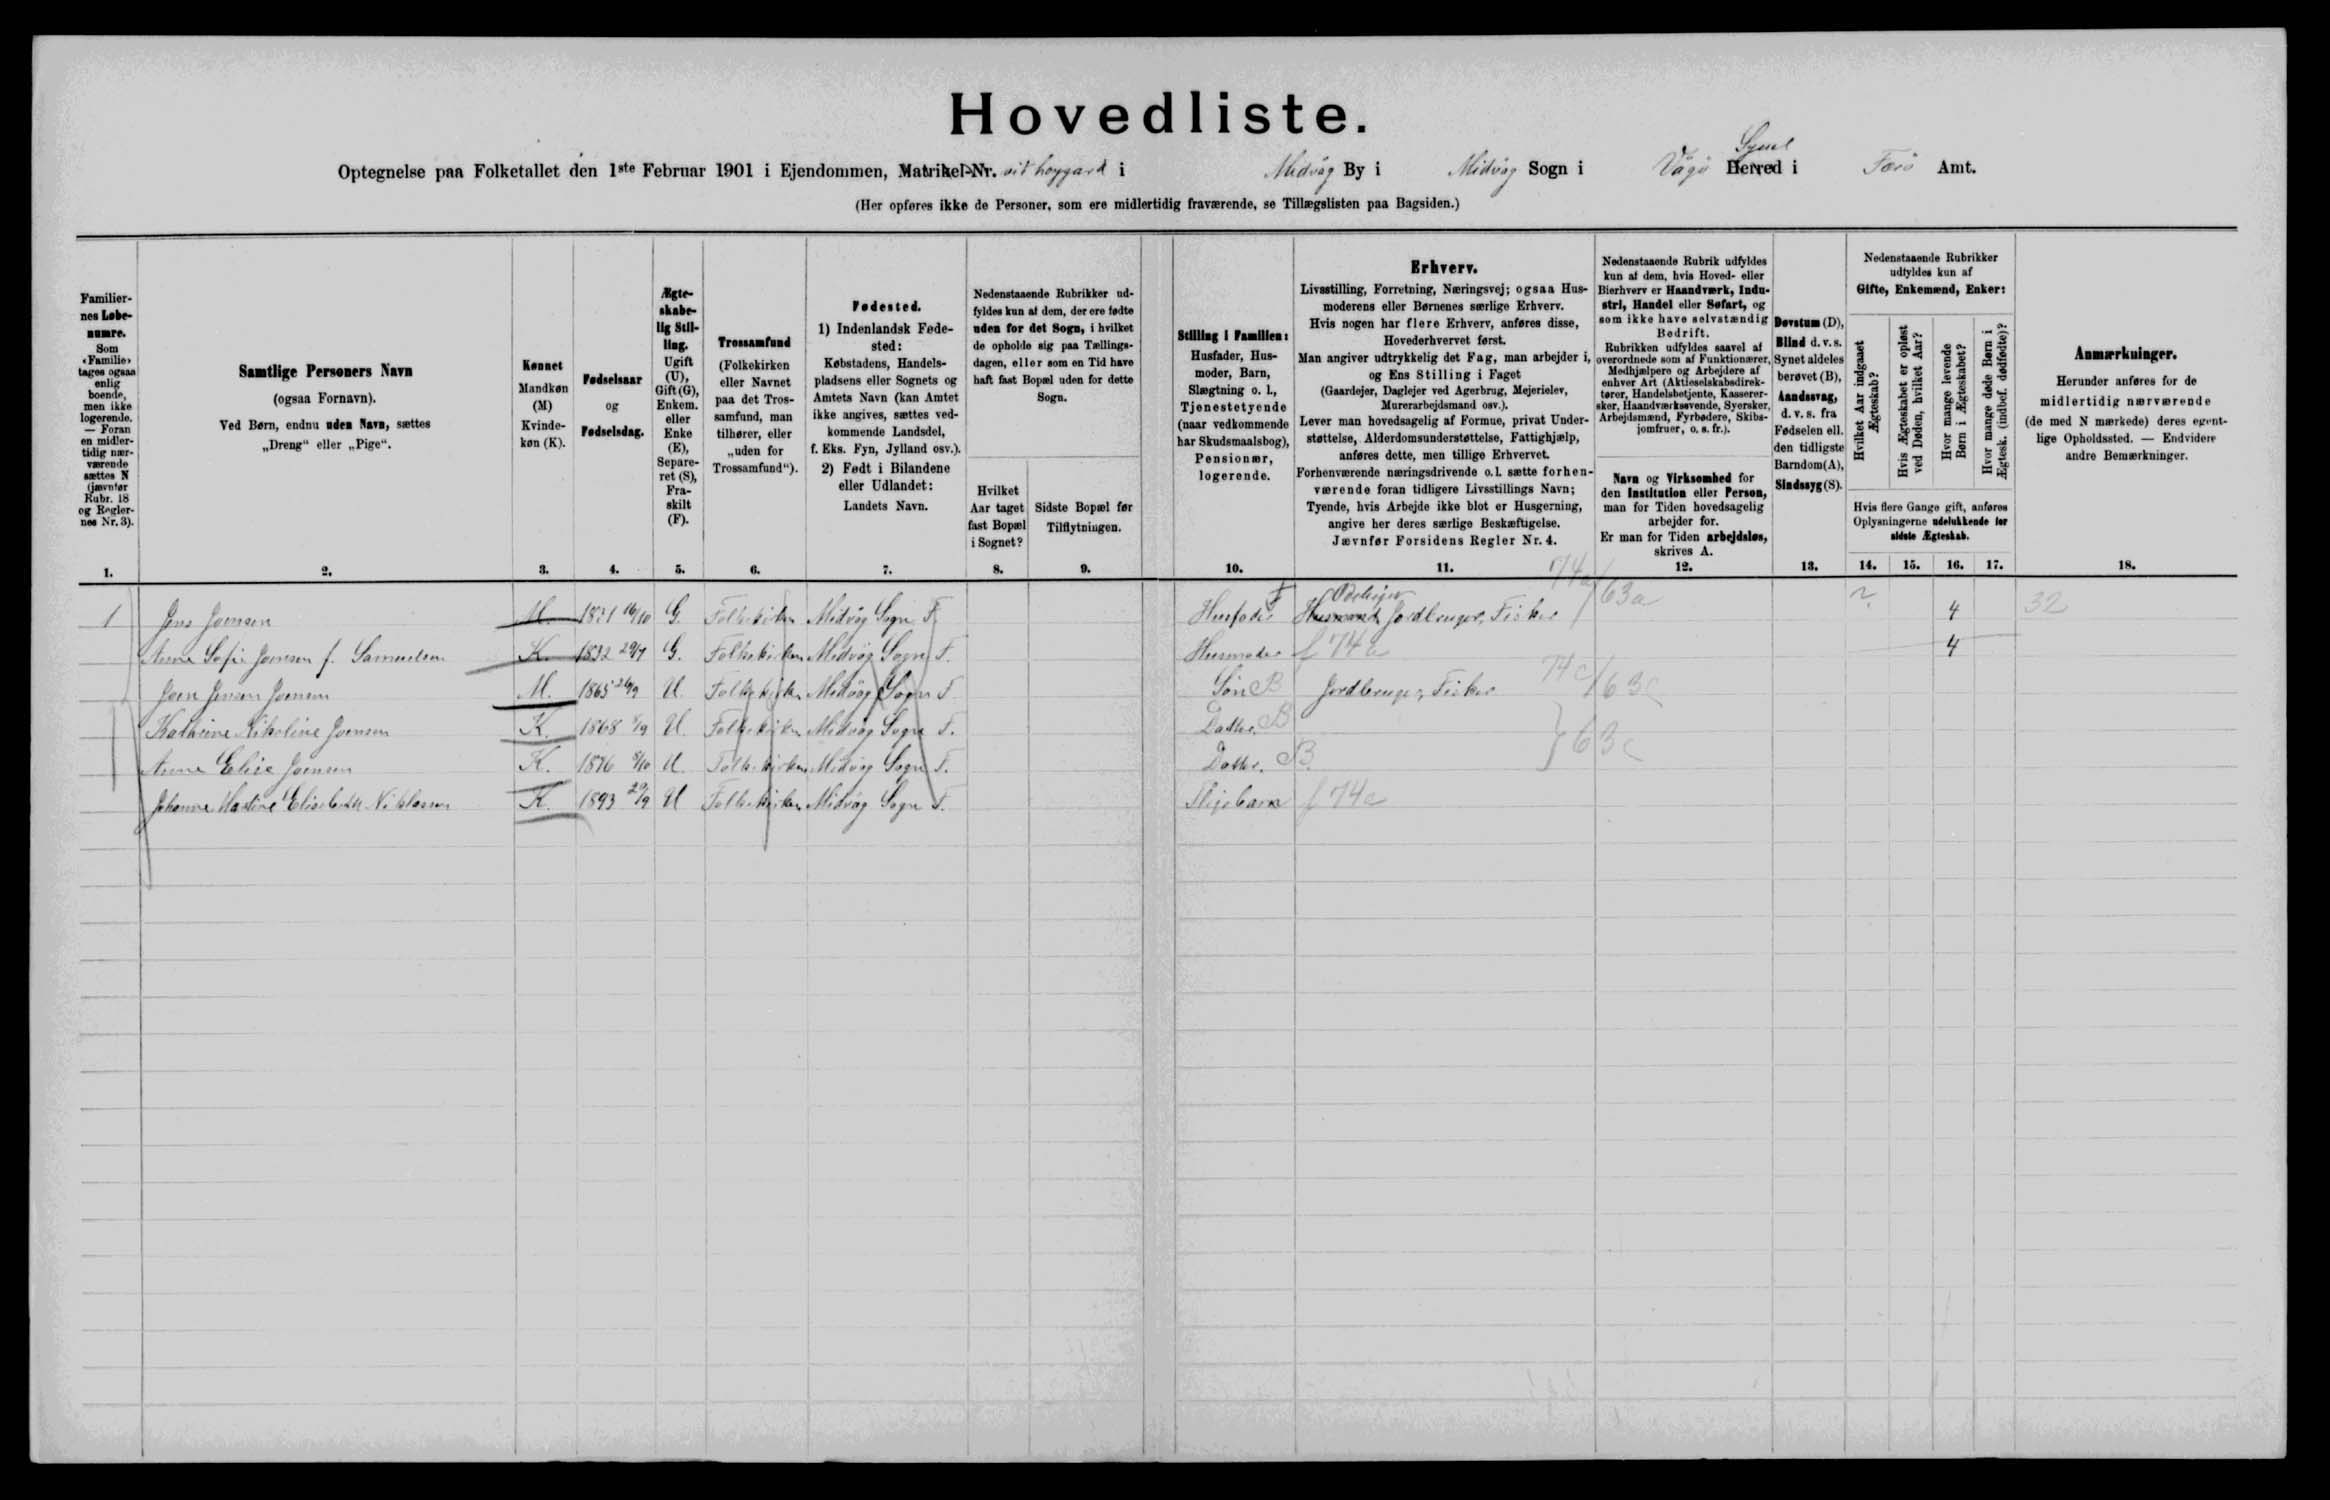 Hovedliste.
Optegnelse paa Folketallet den 1ste Februar 1901 i Ejendommen, Matrikel-Nr. við hoygard i Midvåg By i Midvåg Sogn i Vågø Herred Syssel i Færø Amt.
(Her opføres ikke de Personer, som ere midlertidig fraværende, se Tillægslisten paa Bagsiden.)
Familier-
nes Løbe-
numre.
Som
«Familie»
tages ogsaa
enlig
boende,
men ikke
logerende.
— Foran
en midler-
tidig nær-
værende
sættes N
(jævnfør
Rubr. 18
og Regler-
nes Nr. 3).
1.
Samtlige Personers Navn
(ogsaa Fornavn).
Ved Børn, endnu uden Navn, sættes
„Dreng“ eller „Pige“.
2.
Kønnet
Mandkøn
(M)
Kvinde-
køn (K).
3.
Fødselsaar
og
Fødselsdag.
4.
Ægte-
skabe-
lig Stil-
ling.
Ugift
(U),
Gift (G),
Enkem.
eller
Enke
(E),
Separe-
ret (S),
Fra-
skilt
(F).
5.
Trossamfund
(Folkekirken
eller Navnet
paa det Tros-
samfund, man
tilhører, eller
„uden for
Trossamfund“).
6.
Fødested.
1) Indenlandsk Føde-
sted:
Købstadens, Handels-
pladsens eller Sognets og
Amtets Navn (kan Amtet
ikke angives, sættes ved-
kommende Landsdel,
f. Eks. Fyn, Jylland osv.).
2) Født i Bilandene
eller Udlandet:
Landets Navn.
7.
Nedenstaaende Rubrikker ud-
fyldes kun af dem, der ere fødte
uden for det Sogn, i hvilket
de opholde sig paa Tællings-
dagen, eller som en Tid have
haft fast Bopæl uden for dette
Sogn.
Hvilket
Aar taget
fast Bopæl
i Sognet?
8.
Sidste Bopæl før
Tilflytningen.
9.
Stilling i Familien:
Husfader, Hus-
moder, Barn,
Slægtning o. l.,
Tjenestetyende
(naar vedkommende
har Skudsmaalsbog),
Pensionær,
logerende.
10.
Erhverv.
Livsstilling, Forretning, Næringsvej; ogsaa Hus-
moderens eller Børnenes særlige Erhverv.
Hvis nogen har flere Erhverv, anføres disse,
Hovederhvervet først.
Man angiver udtrykkelig det Fag, man arbejder i,
og Ens Stilling i Faget
(Gaardejer, Daglejer ved Agerbrug, Mejerielev,
Murerarbejdsmand osv.).
Lever man hovedsagelig af Formue, privat Under-
støttelse, Alderdomsunderstøttelse, Fattighjælp,
anføres dette, men tillige Erhvervet.
Forhenværende næringsdrivende o.l. sætte forhen-
værende foran tidligere Livsstillings Navn;
Tyende, hvis Arbejde ikke blot er Husgerning,
angive her deres særlige Beskæftigelse.
Jævnfør Forsidens Regler Nr. 4.
11.
Nedenstaaende Rubrik udfyldes
kun af dem, hvis Hoved- eller
Bierhverv er Haandværk, Indu-
stri, Handel eller Søfart, og
som ikke have selvstændig
Bedrift.
Rubrikken udfyldes saavel af
overordnede som af Funktionærer,
Medhjælpere og Arbejdere af
enhver Art (Aktieselskabsdirek-
tører, Handelsbetjente, Kasserer-
sker, Haandværkssvende, Syersker,
Arbejdsmænd, Fyrbødere, Skibs-
jomfruer, o. s. fr.).
Navn og Virksomhed for
den Institution eller Person,
man for Tiden hovedsagelig
arbejder for.
Er man for Tiden arbejdsløs,
skrives A.
12.
Døvstum (D),
Blind d. v. s.
Synet aldeles
berøvet (B),
Aandssvag,
d. v. s. fra
Fødselen ell.
den tidligste
Barndom (A),
Sindssyg (S).
13.
Nedenstaaende Rubrikker
udfyldes kun af
Gifte, Enkemænd, Enker:
Hvilket Aar indgaaet
Ægteskab?
Hvis Ægteskabet er opløst
ved Døden, hvilket Aar?
Hvor mange levende
Børn i Ægteskabet?
Hvor mange døde Børn i
Ægtesk. (indbef. dødfødte)?
Hvis flere Gange gift, anføres
Oplysningerne udelukkende for
sidste Ægteskab.
14. 15. 16. 17.
Anmærkninger.
Herunder anføres for de
midlertidig nærværende
(de med N mærkede) deres egent-
lige Opholdssted. — Endvidere
andre Bemærkninger.
18.
1 Jens Joensen M. 1821 16/10 G. Folkekirken Midvåg Sogn F. Husfader Husmand Odelsejer Jordbruger, Fisker 74a/63a ? 4 32
Anne Sofie Joensen f. Samuelsen K. 1832 29/7 G. Folkekirken Midvåg Sogn F. Husmoder f 74a 4
Joen Jensen Joensen M. 1865 26/9 U. Folkekirken Midvåg Sogn F. Søn B Jordbruger, Fisker 74c/63c
Kathrine Nikoline Joensen K. 1868 U. Folkekirken Midvåg Sogn F. Datter. B } 63c
Anne Elise Joensen K. 1876 8/10 U. Folkekirken Midvåg Sogn F. Datter. B
Johanne Martine Elisabeth Niklassen K. 1893 29/9 U Folkekirken Midvåg Sogn F. Plejebarn f 74c